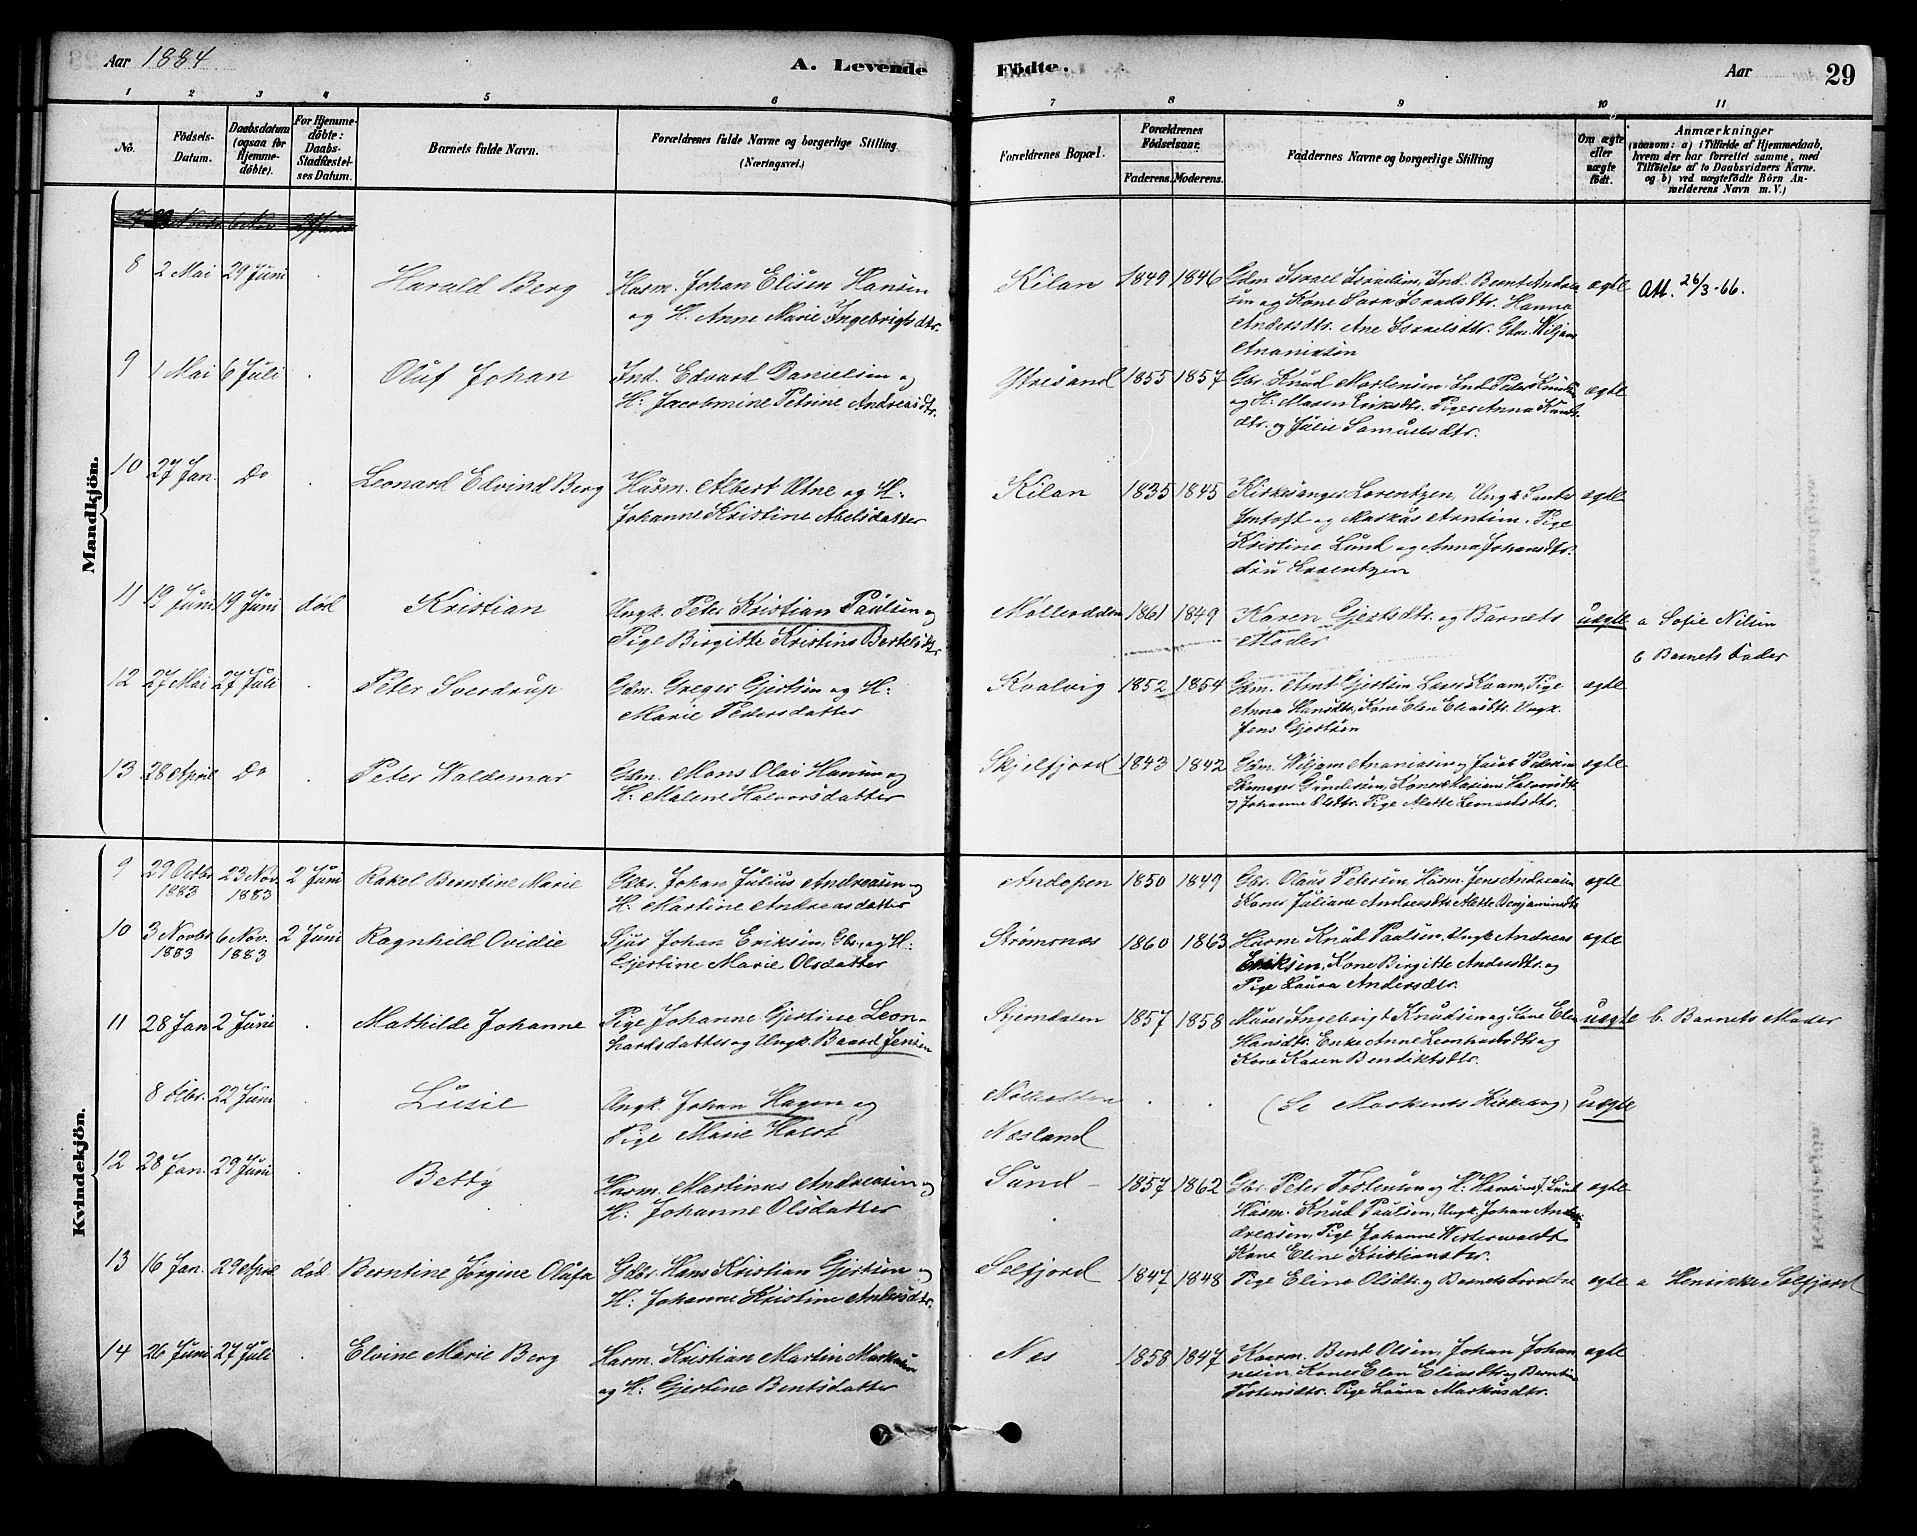 Aar 1884
A. Levende
Födte.
Aar
29
1 2 3 4 5 6 7 8 9 10 11
No.
Födsels-
Datum.
Daabsdatum
(ogsaa for
Hjemme-
döbte).
For Hjemme-
döbte:
Daabs-
Stadfæstel-
ses Datum.
Barnets fulde Navn.
Forældrenes fulde Navne og borgerlige Stilling.
(Næringsvei.)
Forældrenes Bopæl.
Forældrenes
Födselsaar.
Faderens. Moderens.
Faddernes Navne og borgerlige Stilling
Om ægte
eller
uægte
født.
Anmærkninger
(saasom: a) i Tilfælde af Hjemmedaab,
hvem der har forrettet samme, med
Tilföielse af to Daabsvidners Navne.
og b) ved uægtefödte Börn An-
melderens Navn m. V.)
Mandkjön.
8 2 Mai 29 Juni . Harald Berg
Husm. Johan Elisen Hansen
og H. Anne Marie Ingebrigtsdtr.
Kilan 1849 1846
Gdm Israel Israelsen, Ind. Bernt Andrea
sen og Kone Sara Israelsdtr. Hanna
Andersdtr. Ane Israelsdtr. Gbr. Wiljam
Ananiasen
ægte
Att. 26/3-66.
9 1 Mai 6 Juli . Oluf Johan
Ind. Edvard Danielsen og
H: Jacobmine Petrine Andreasdtr.
Ytresand 1855 1857
Gbr. Knud Martensen, Ind Peder Knudsen
og H. Maren Eriksdtr. Piger Anna Knuds
dtr. og Julie Samuelsdtr.
ægte
10 27 Jan. Do . Leonard Edvind Berg
Husm. Albert Utne og H:
Johanne Kristine Abelsdatter
Kilan 1835 1845
Kirkesanger Lorentzen, Ungk
og Markus Arntsen. Pige
Kristine Lund og Anna Johansdtr.
Fru Lorentzen
ægte
11 19 Juni 19 Juni død Kristian
Ungk. Peter Kristian Paulsen og
Pige Birgitte Kristine Bertelsdtr
Mølleodden 1861 1849
Karen Gjertsdtr. og Barnets
Moder
uægte
a Sofie Nilsen
b Barnets Fader
12 27 Mai 27 Juli . Peter Sverdrup
Gdm. Greger Gjertsen og H:
Marie Pedersdatter
Kvalvig 1852 1854
Gdm. Arnt Gjertsen, Kvam, Pige
Anna Hansdtr, Kone Elen Eliasdtr. Ungk.
Jens Gjertsen
ægte
13 28 April Do . Peter Waldemar
Gdm. Mons Olai Hansen og
H: Malene Halvorsdatter
Skjelfjord 1843 1842
Gdm. Wiljam Ananiasen og Jacob Pedersen
Skomager Gundersen, Koner Mariane Halvorsdtr.
og Johanne Olsdtr. Pige Alette Leonardsdtr.
ægte
Kvindekjön.
9 29 Octbr 1883 23 Nov. 1883 2 Juni Rakel Berntine Marie
Gbr. Johan Julius Andreasen og
H: Martine Andreasdatter
Andopen 1850 1849
Gbr. Olaus Petersen, Husm. Jens Andreasen
Koner Juliane Andersdtr. Alette Benjaminsdtr
ægte
10 3 Novbr 1883 6 Nov. 1883 2 Juni Ragnhild Ovidie
Sjus Johan Eriksen, Gbr, og H:
Gjertine Marie Olsdatter
Strømsnæs 1860 1863
Husm Knud Paulsen, Ungk Andreas
Eriksen, Kone Birgitte Andersdtr. og
Pige Laura Andersdtr.
ægte
11 28 Jan 2 Juni . Mathilde Johanne
Pige Johanne Gjertine Leon-
hardsdatter og Ungk. Baard Jensen
Stjerndalen 1857 1858
Murer Ingebrigt Knudsen og Kone Elen
Hansdtr. Enke Anne Leonhardsdtr og
Kone Karen Bendiktsdtr.
uægte
b. Barnets Moder
8 Febr. 22 Juni . Lusie
Ungk. Johan Hagen og
Pige Marie Holst
Nesland . .
(Se Moskenes Kirkebog)
uægte
12 28 Jan. 29 Juni . Betty
Husm. Martinus Andreasen og
H: Johanne Olsdatter
Sund 1857 1862
Gbr. Peter Tostensen og H: Hansine J. Sund
Husm. Knud Paulsen, Ungk. Johan Andr
dreasen, Pige Johanne Westerwaldt
Kone Eline Kristiansdtr.
ægte
13 16 Jan. 29 April død Berntine Jørgine Olufa
Gdbr. Hans Kristian Gjertsen og
H: Johanne Kristine Andersdtr.
Selfjord 1847 1848
Pige Eline Olsdtr. og Barnets Forældre
ægte
a Henrikke Selfjord
14 26 Juni 27 Juli . Elvine Marie Berg
Husm. Kristian Martin Markusen
og H: Gjertine Bentsdatter
Næs 1858 1847
Kaarm. Bent Olsen, Johan Johan
nesen, Koner Elen Eliasdtr og Berntine
Tostensdtr. Pige Laura Markusdtr.
ægte